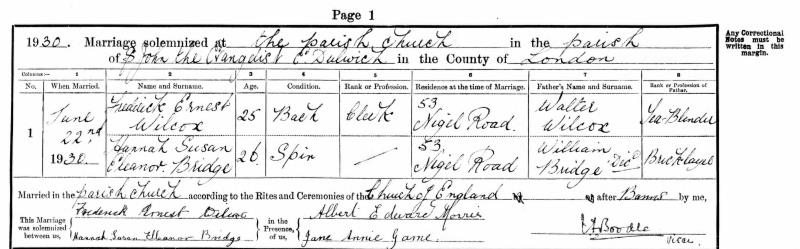 Page 1
Any Correctional
Notes must be
written in this
margin.
1930. Marriage solemnized at the parish church in the parish
of S. John the Evangelist E. Dulwich in the County of London
Columns:— 1 2 3 4 5 6 7 8
No. When Married. Name and Surname. Age. Condition. Rank or Profession. Residence at the time of Marriage. Father's Name and Surname. Rank or Profession of Father.
1 June 22nd 1930. Frederick Ernest Wilcox 25 Bach Clerk 53, Nigel Road. Walter Wilcox Tea-Blender
Hannah Susan Eleanor Bridge 26 Spin — 53, Nigel Road William Bridge "Dec" Bricklayer
Married in the parish church according to the Rites and Ceremonies of the Church of England after Banns by me,
This Marriage was solemnized between us, Frederick Ernest Wilcox
Hannah Susan Eleanor Bridge
in the Presence of us, Albert Edward Morris
Jane Annie Game.
Boodle
Vicar.